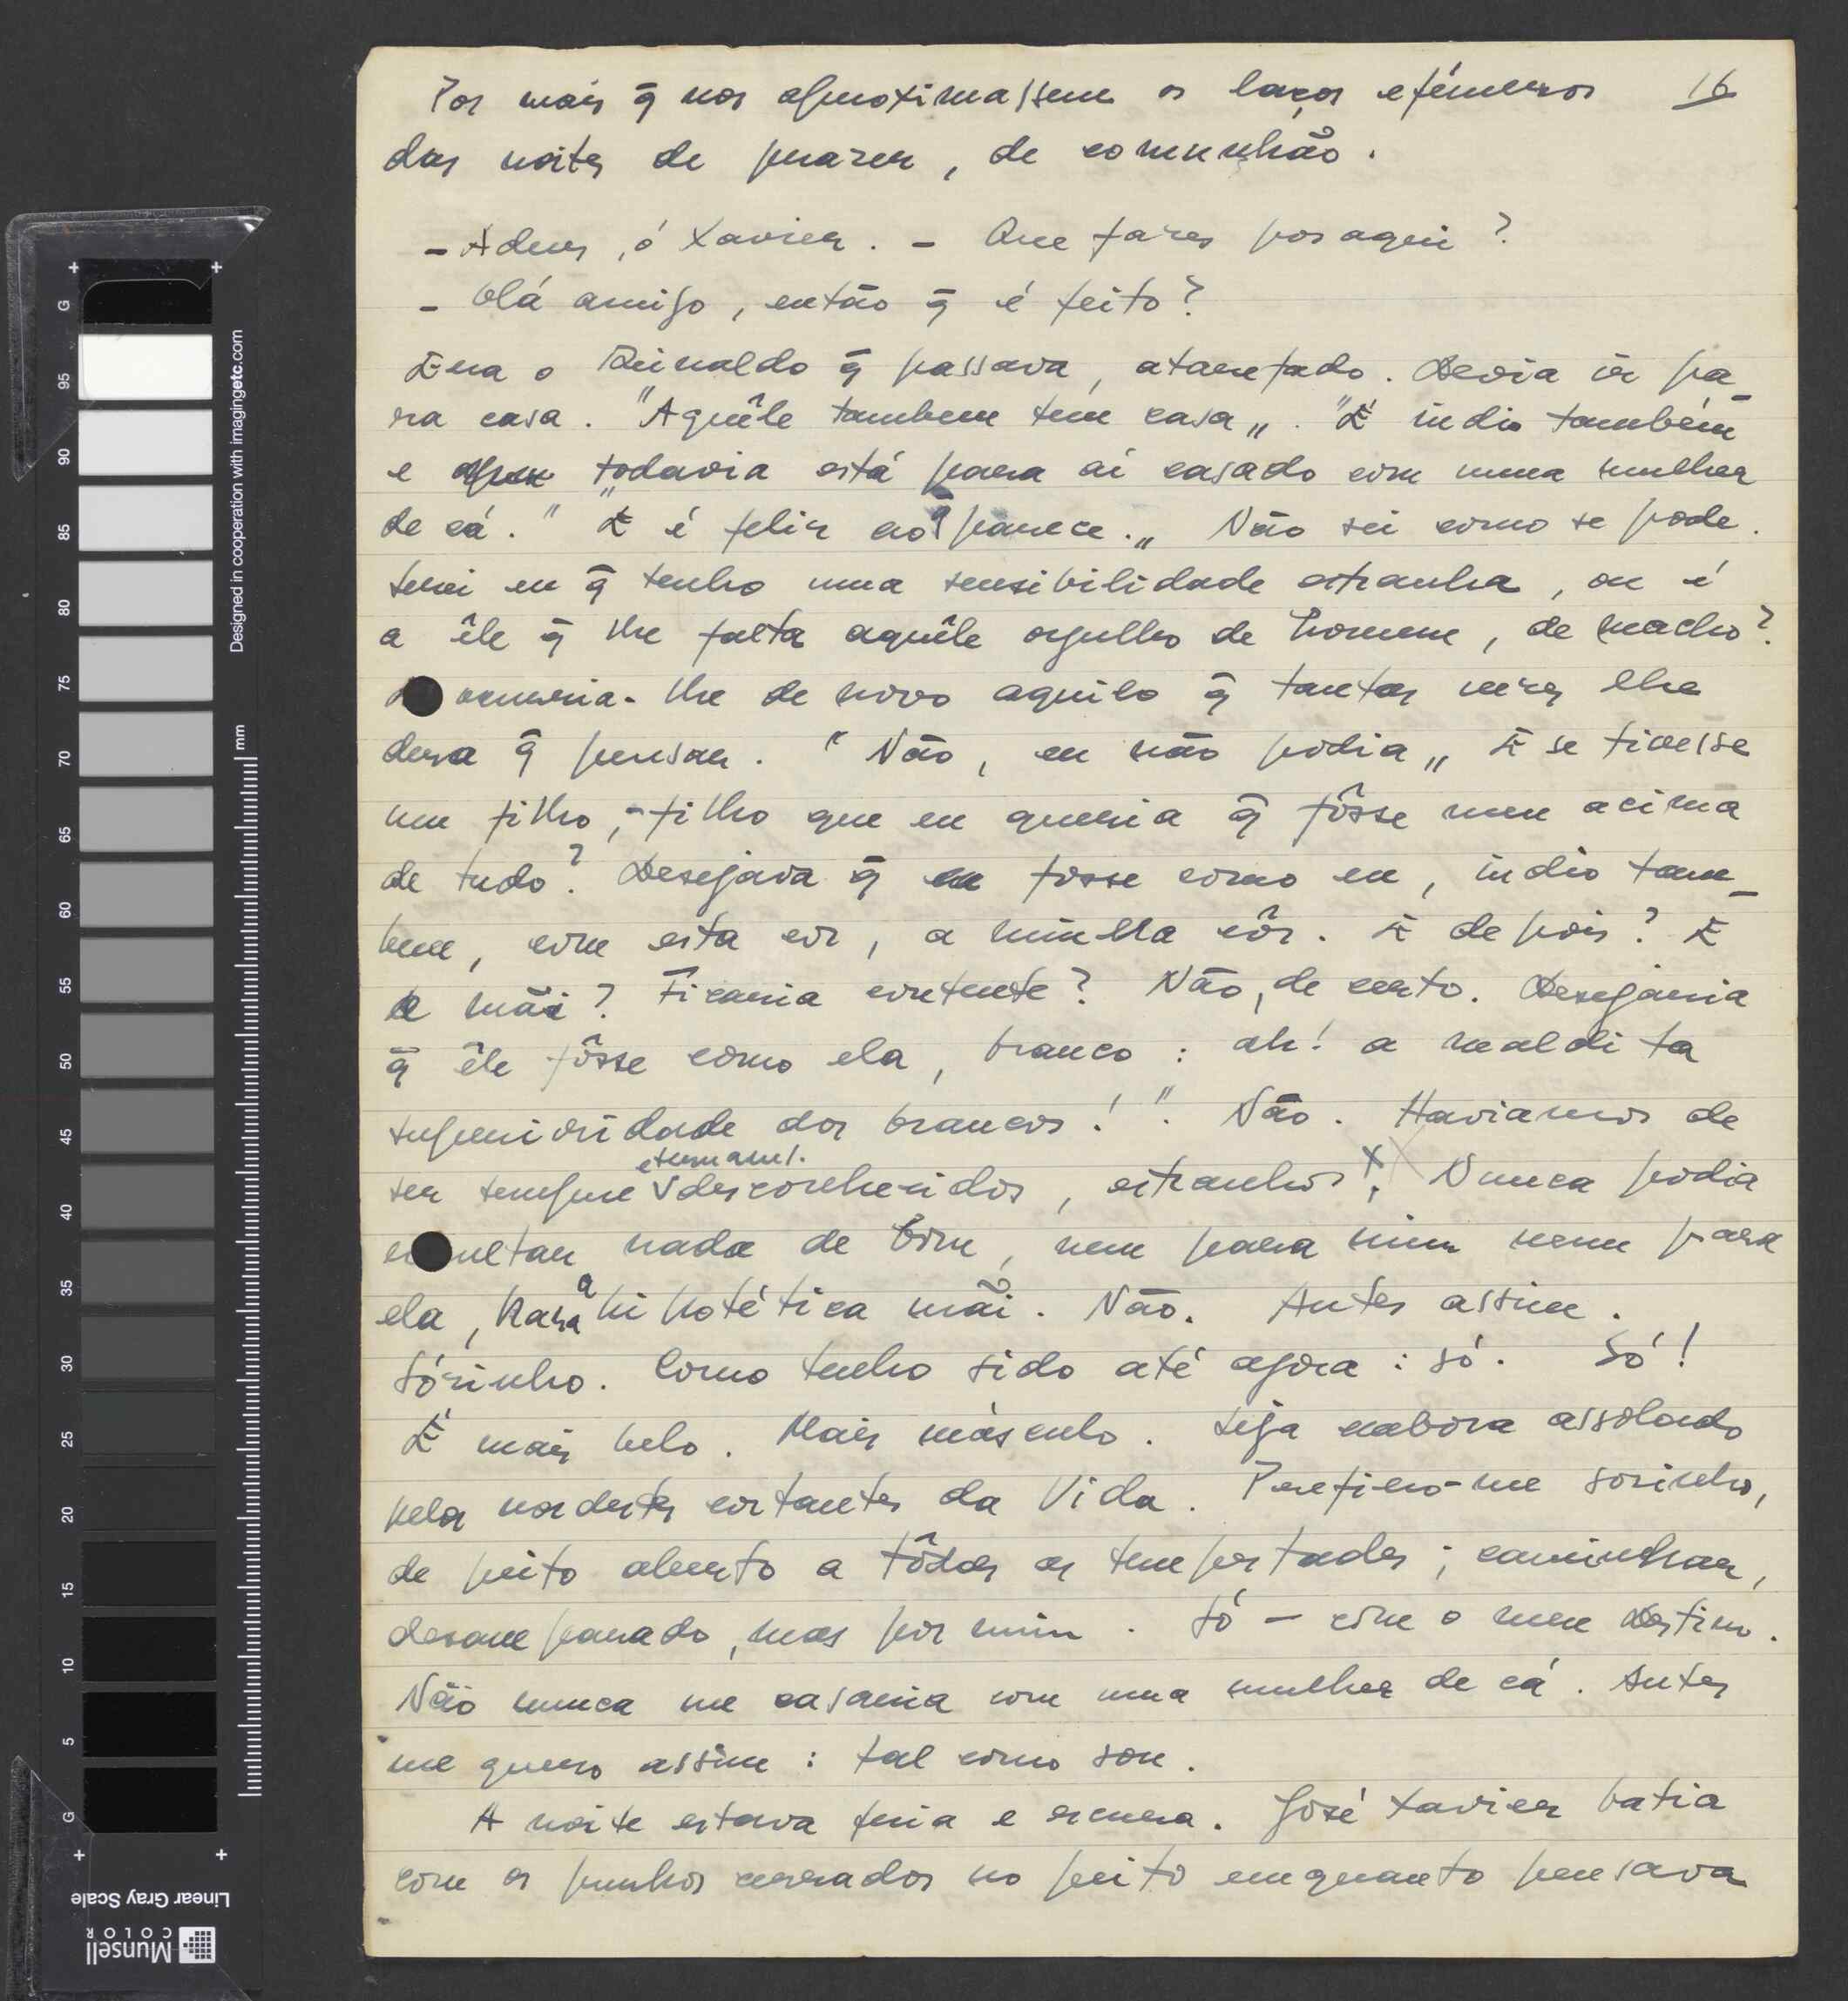 Por mais q̄ nos aproximassem os laços efémeros 16
das noites de prazer, de comunhão.
- Adeus, ó Xavier. - Que fazes por aqui?
- Olá amigo, então q̄ é feito?
Era o Reinaldo q̄ passava, atarefado. Devia ir pa-
ra casa. "Aquêle tambem tem casa„. "É indio também
e todavia está para aí casado com uma mulher
de cá." "E é feliz ao q̄ parece.„ Não sei como se pode.
Serei eu q̄ tenho uma sensibilidade estranha, ou é
a êle q̄ lhe falta aquêle orgulho de homem, de macho?
ocorria-lhe de novo aquilo q̄ tantas vezes lhe
dera q̄ pensar. "Não, eu não podia„ E se tivesse
um filho, - filho que eu queria q̄ fôsse meu acima
de tudo? Desejava q̄ fosse como eu, indio tam-
bem, com esta cor, a minha côr. E depois? E
a mãi? Ficaria contente? Não, de certo. Desejaria
q̄ êle fôsse como ela, branco: ah! a maldita
superioridade dos brancos!". Não. Haviamos de
ser sempre eternam/. desconhecidos, estranhos. Nunca podia
resultar nada de bom, nem para mim nem para
ela, para a hipotética mãi. Não. Antes assim.
Sózinho. Como tenho sido até agora: só. Só!
É mais belo. Mais másculo. Seja embora assolado
pelos nordestes cortantes da Vida. Prefiro-me sozinho,
de peito aberto a tôdas as tempestades; caminhar,
desamparado, mas por mim. Só - com o meu destino.
Não nunca me casaria com uma mulher de cá. Antes
me quero assim: tal como sou.
A noite estava fria e escura. José Xavier batia
com os punhos cerrados no peito emquanto pensava
Designed in cooperation with imagingetc.com
mm
G 95 90 85 80 75 70 65 60 55 50 45 40 35 30 25 20 15 10 5 G
Linear Gray Scale
Munsell
COLOR